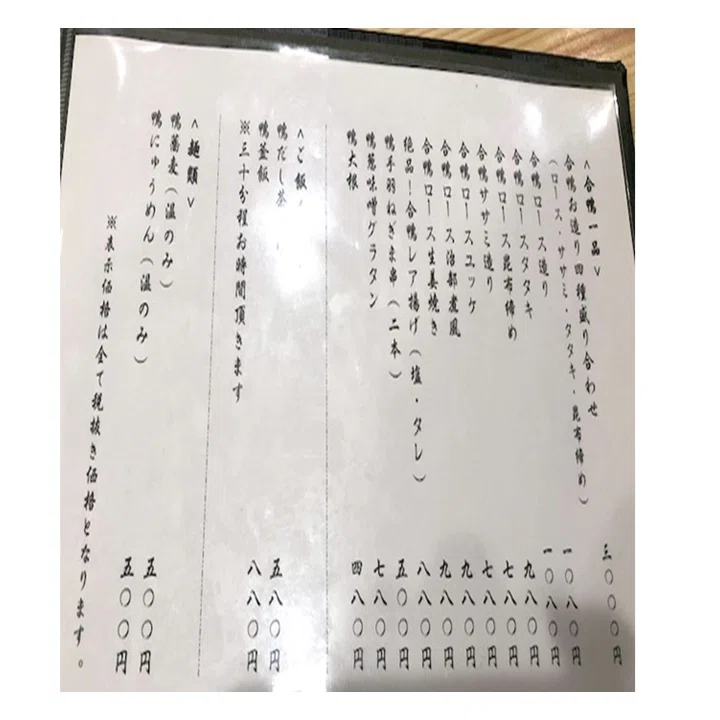 <合鴨一品>
合鴨お造り四種盛り合わせ 三〇〇〇円
(ロース・ササミ・タタキ・昆布締め)
合鴨ロース造り 一〇八〇円
合鴨ロースタタキ 一〇八〇円
合鴨ロース昆布締め 九八〇円
合鴨ササミ造り 七八〇円
合鴨ロースユッケ 七八〇円
合鴨ロース治部煮風 九八〇円
合鴨ロース生姜焼き 九八〇円
絶品!合鴨レア揚げ(塩・タレ) 八八〇円
鴨手羽ねぎま串(二本) 五〇〇円
鴨葱味噌グラタン 七八〇円
鴨大根 四八〇円
<ご飯
鴨だし茶 五八〇円
鴨釜飯 八八〇円
※三十分程お時間頂きます
<麺類>
鴨蕎麦(温のみ) 五〇〇円
鴨にゅうめん(温のみ) 五〇〇円
※表示価格は全て税抜き価格となります。